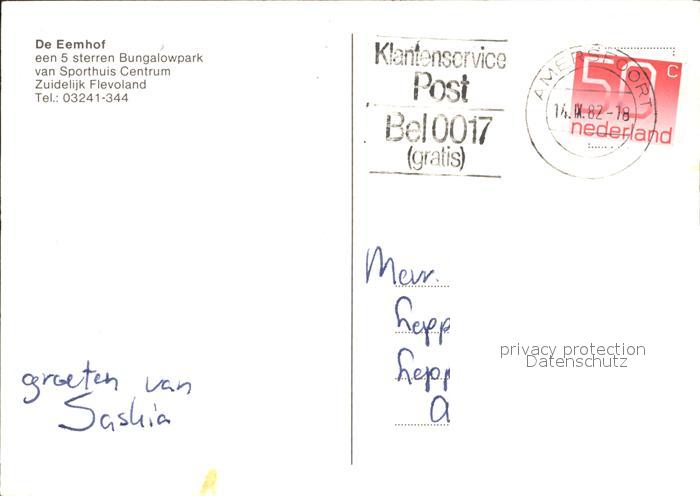 De Eemhof
een 5 sterren Bungalowpark
van Sporthuis Centrum
Zuidelijk Flevoland
Tel.: 03241-344
Klantenservice
Post
Bel 0017
(gratis)
AMERSFOORT
14.IX.82-18
50 C
nederland
Mevr.
hepp
hepp
a
privacy protection
Datenschutz
groeten van
Saskia